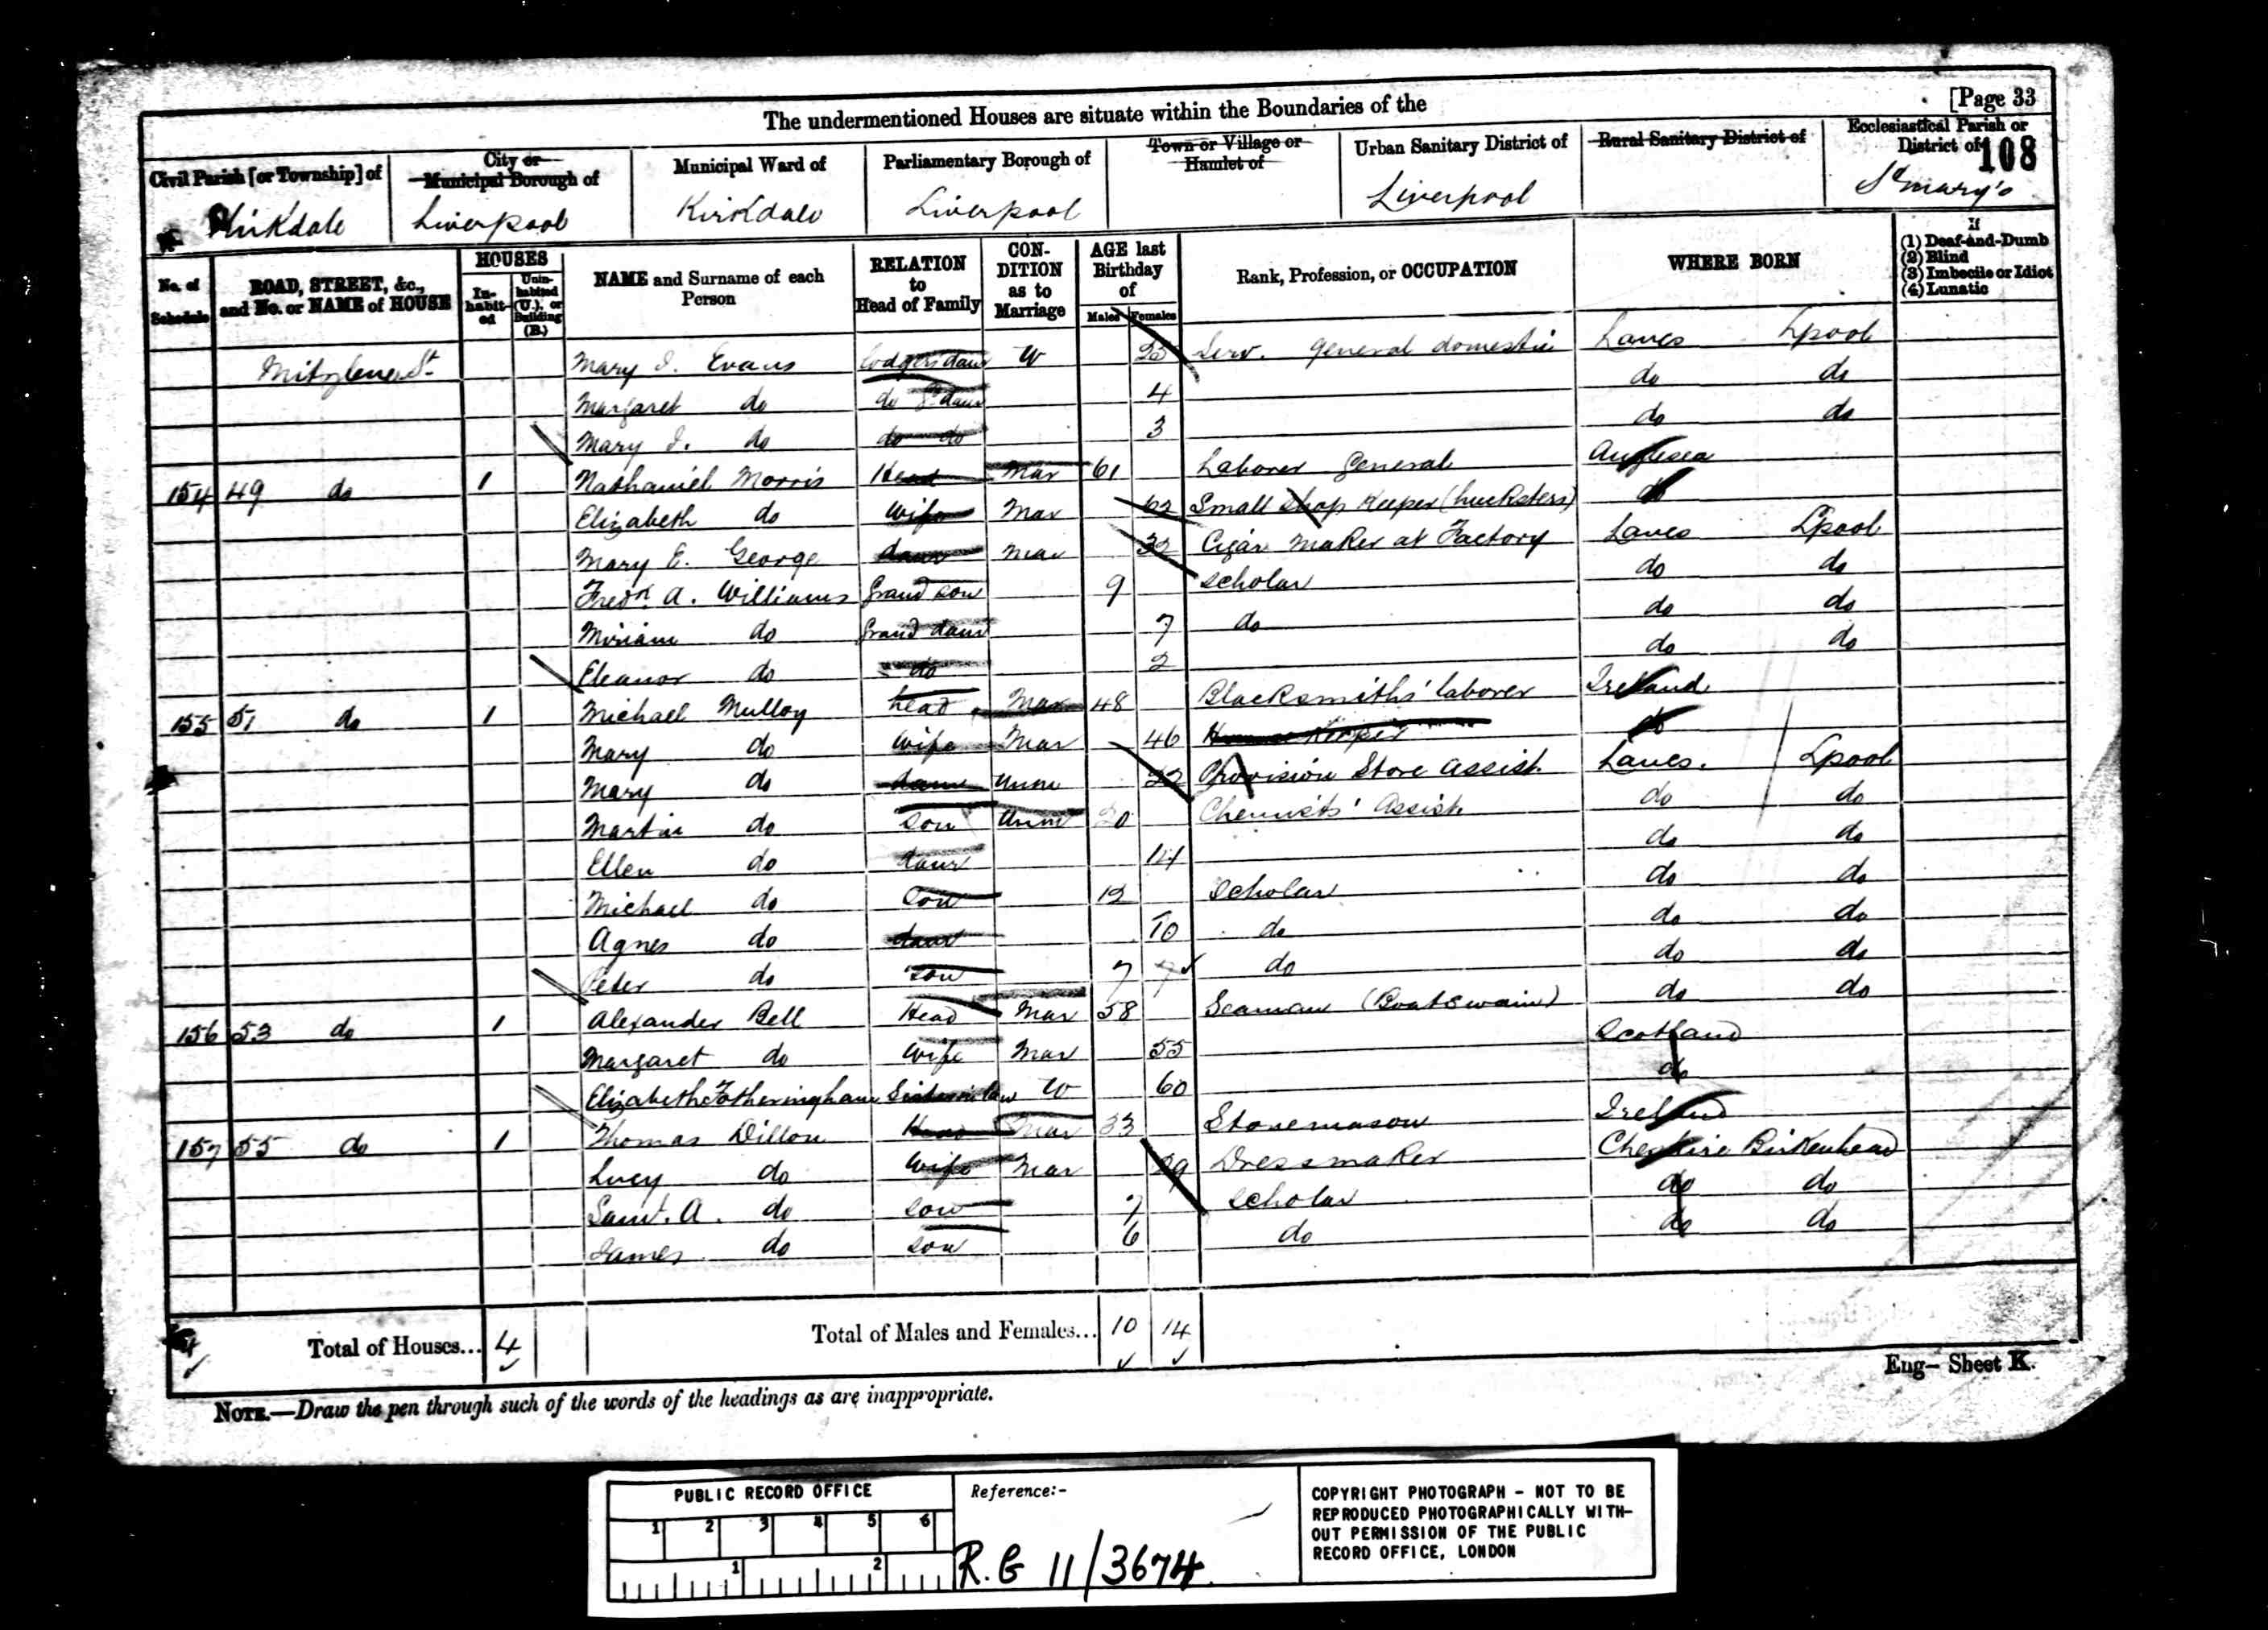 The undermentioned Houses are situate within the Boundaries of the
[Page 33
Civil Parish [or Township] of
City or Municipal Borough of
Municipal Ward of
Parliamentary Borough of
Town or Village or Hamlet of
Urban Sanitary District of
Rural Sanitary District of
Ecclesiastical Parish or District of
108
Kirkdale
Liverpool
Kirkdale
Liverpool
Liverpool
St Mary's
No. of Schedule
ROAD, STREET, &c., and No. or NAME of HOUSE
HOUSES
In-habit-ed
Unin-habited (U.), or Building (B.)
NAME and Surname of each Person
RELATION to Head of Family
CON-DITION as to Marriage
AGE last Birthday of
Males
Females
Rank, Profession, or OCCUPATION
WHERE BORN
If
(1) Deaf-and-Dumb
(2) Blind
(3) Imbecile or Idiot
(4) Lunatic
Mitylene St Mary J. Evans lodgers daur W Serv. general domestic Lancs Lpool
Margaret do do 4 do do
Mary J. do do do 3 do do
154 49 do 1 Nathaniel Morris Head Mar 61 Laborer general Anglesea
Elizabeth do Wife Mar 62 Small Shop Keeper (hucksters) do
Mary E. George daur Mar 32 Cigar Maker at Factory Lancs Lpool
Fredk A. Williams Grand son 9 Scholar do do
Miriam do Grand daur 7 do do do
Eleanor do do 2 do do
155 51 do 1 Michael Mulloy head Mar 48 Blacksmiths' laborer Ireland
Mary do Wife Mar 46 House Keeper do
Mary do daur Unm 22 Provision Store Assist. Lancs. Lpool
Martin do son Unm 20 Chemists' Assist. do do
Ellen do daur 14 do do
Michael do son 12 Scholar do do
Agnes do daur 10 do do do
Peter do son 7 do do do
156 53 do 1 Alexander Bell Head Mar 58 Seaman (Boatswain) do do
Margaret do Wife Mar 55 Scotland
Elizabeth Fotheringham Sister in law W 60 do
157 55 do 1 Thomas Dillon Head Mar 33 Stonemason Ireland
Lucy do Wife Mar 29 Dressmaker Cheshire Birkenhead
Saml. A. do son 7 Scholar do do
James do son 6 do do do
4 Total of Houses... 4
Total of Males and Females... 10 14
Eng— Sheet K.
NOTE.—Draw the pen through such of the words of the headings as are inappropriate.
PUBLIC RECORD OFFICE
1 2 3 4 5 6
1 2
Reference:-
R.G 11/3674
COPYRIGHT PHOTOGRAPH - NOT TO BE
REPRODUCED PHOTOGRAPHICALLY WITH-
OUT PERMISSION OF THE PUBLIC
RECORD OFFICE, LONDON